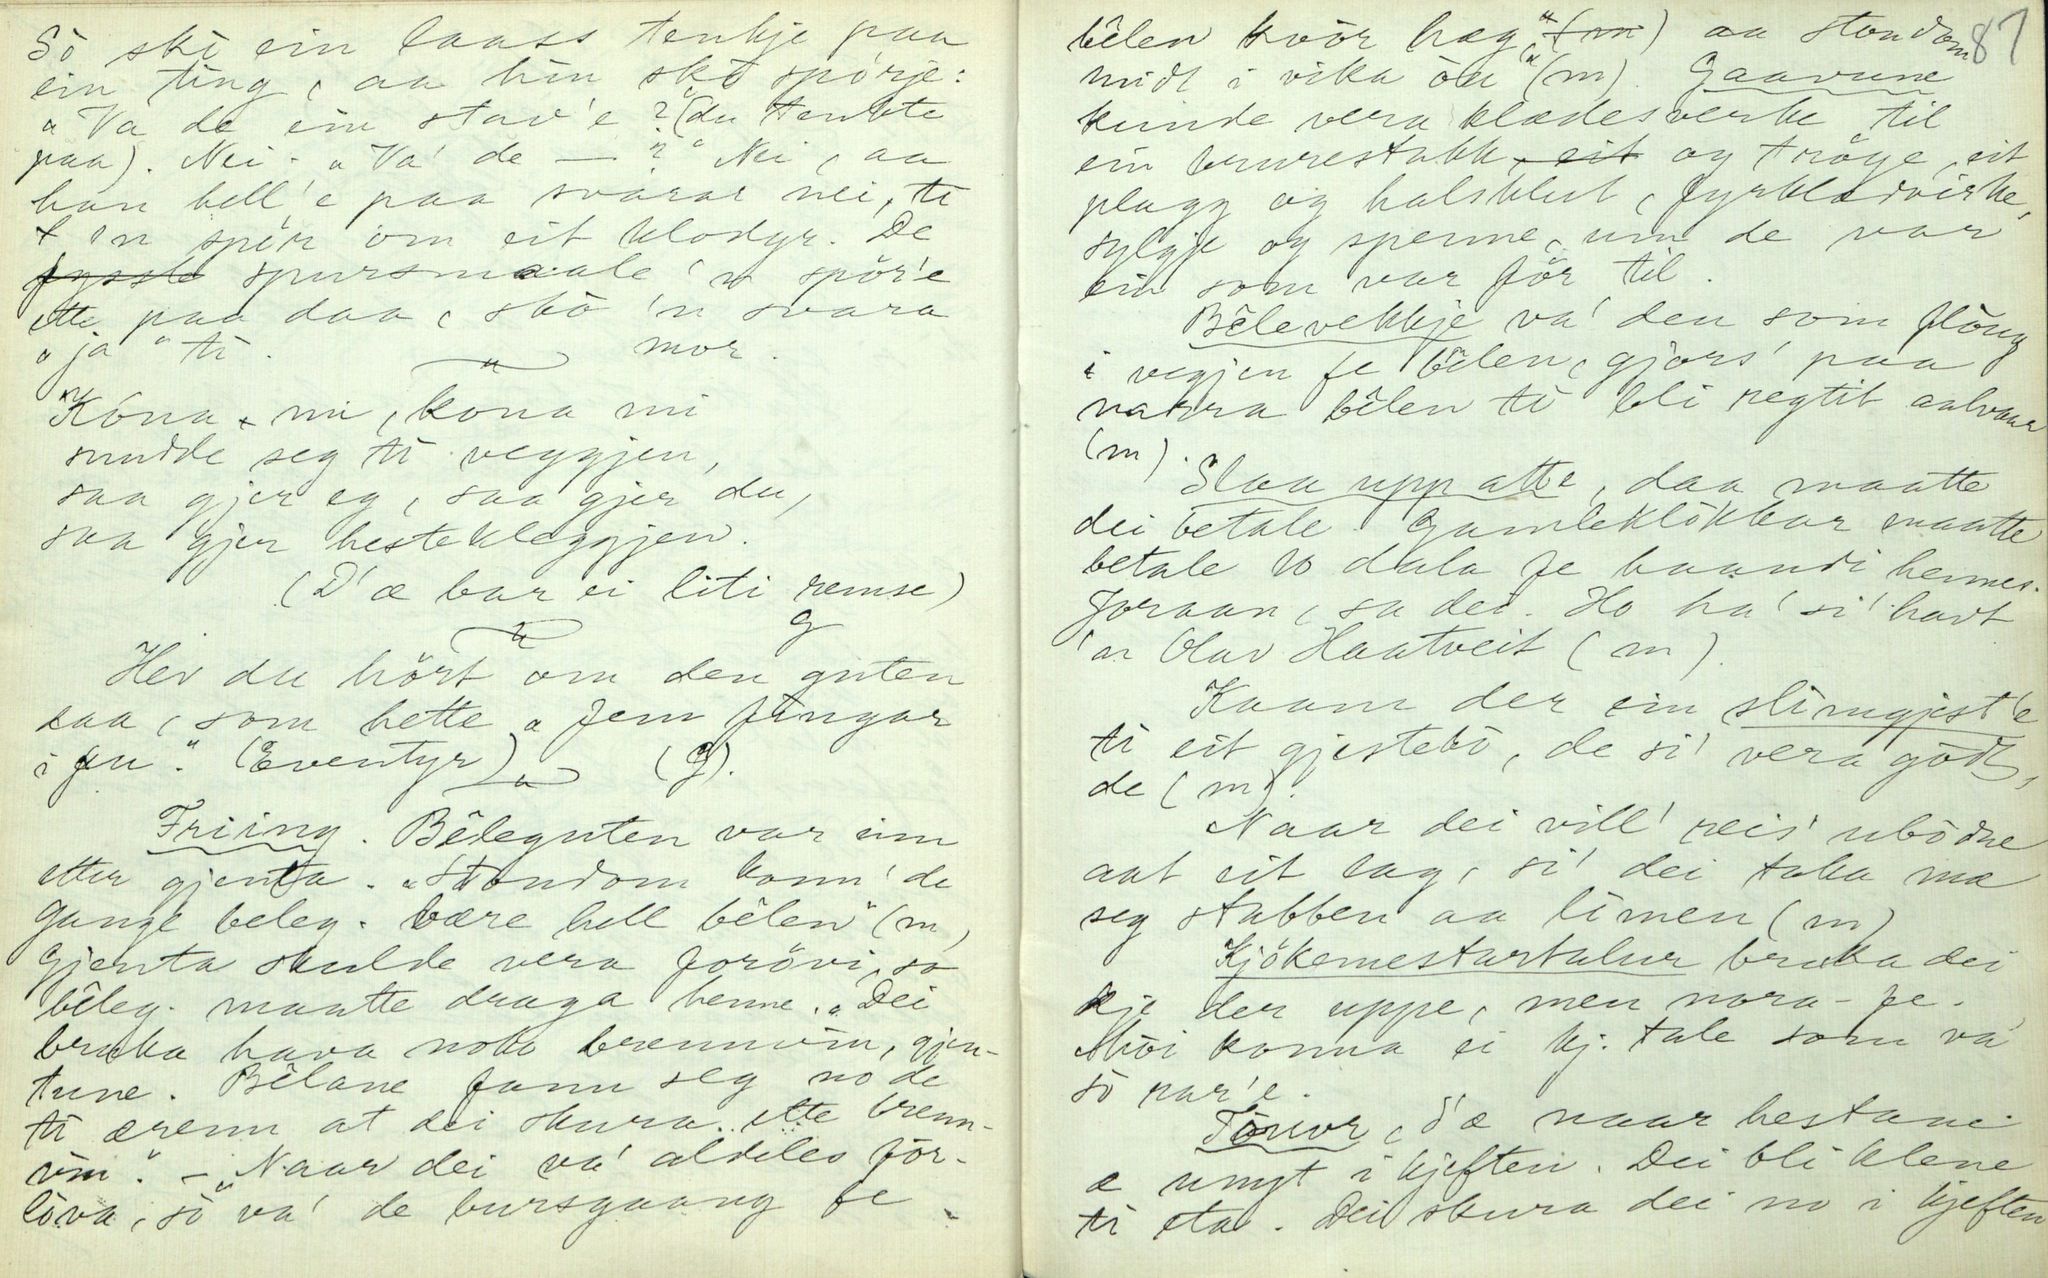 Sò ski ein laass tenkje paa
ein ting, aa hin ski spørje:
„Va de ein stav'e?“ (du tenkte
paa). Nei. „Va' de — ?“ Nei, aa
han hell'e paa svarar nei, te
'n spør om eit klodyr. De
fysste spursmaale 'n spør'e
ette paa daa, skò 'n svara
„ja“ ti. mor.
"
„Kóna mi, kona mi
snudde seg ti veggjen,
saa gjer eg, saa gjer du,
saa gjer hestekleggjen.
(D'æ bar ei liti remse)
g
"
Hev du hört om den guten
saa, som hette „Fem fingar
i fu“. (Eventyr) (g).
"
Friing. Bêleguten var um
etter gjenta. „Stondom konn' de
gange beleg. bære hell bêlen“ (m)
Gjenta skulde vera forövi, so
bêleg. maatte draga henne. „Dei
bruka hava noko brennvin, gjen-
tune. Bêlane fann seg no de
ti ærenn at dei skura ette brenn-
vin.“ – „Naar dei va' aldeles för-
lòva, sò va' de bursgaang fe
87
bêlen kvör hæg“ (m) aa stondom
midt i vika òu“ (m). Gaavune
kunde vera klædesverke til
ein brurestakk, eit og tröye, eit
plagg og halsklut, fyrklædvirke,
sylgje og spenne, um de var
ein som var för til.
Bêlevekkje va' den som flöug
i vegjen fe bêlen, gjors' paa
narra bêlen ti bli regtit aalvaar
(m).
Slaa upp atte, daa maatte
dei betale. Gamleklòkkar maatte
betale 10 dala fe haandi hennes.
Joraan, sa dei. Ho ha' si' havt
'an Olav Haatveit (m).
Kaam der ein slimgjest'e
ti eit gjestebò, de si' vera gòdt,
de (m).
Naar dei vill' reis' ubòdne
aat eit lag, si' dei taka mæ
seg stabben aa limen (m)
Kjökemestartalur bruka dei
kje der uppe, men nora-fe.
Mòi konna ei kj. tale som va'
sò rar'e.
Tònur, d'æ naar hestane
æ umyt i kjeften. Dei bli klene
ti eta. Dei skura dei no i kjeften